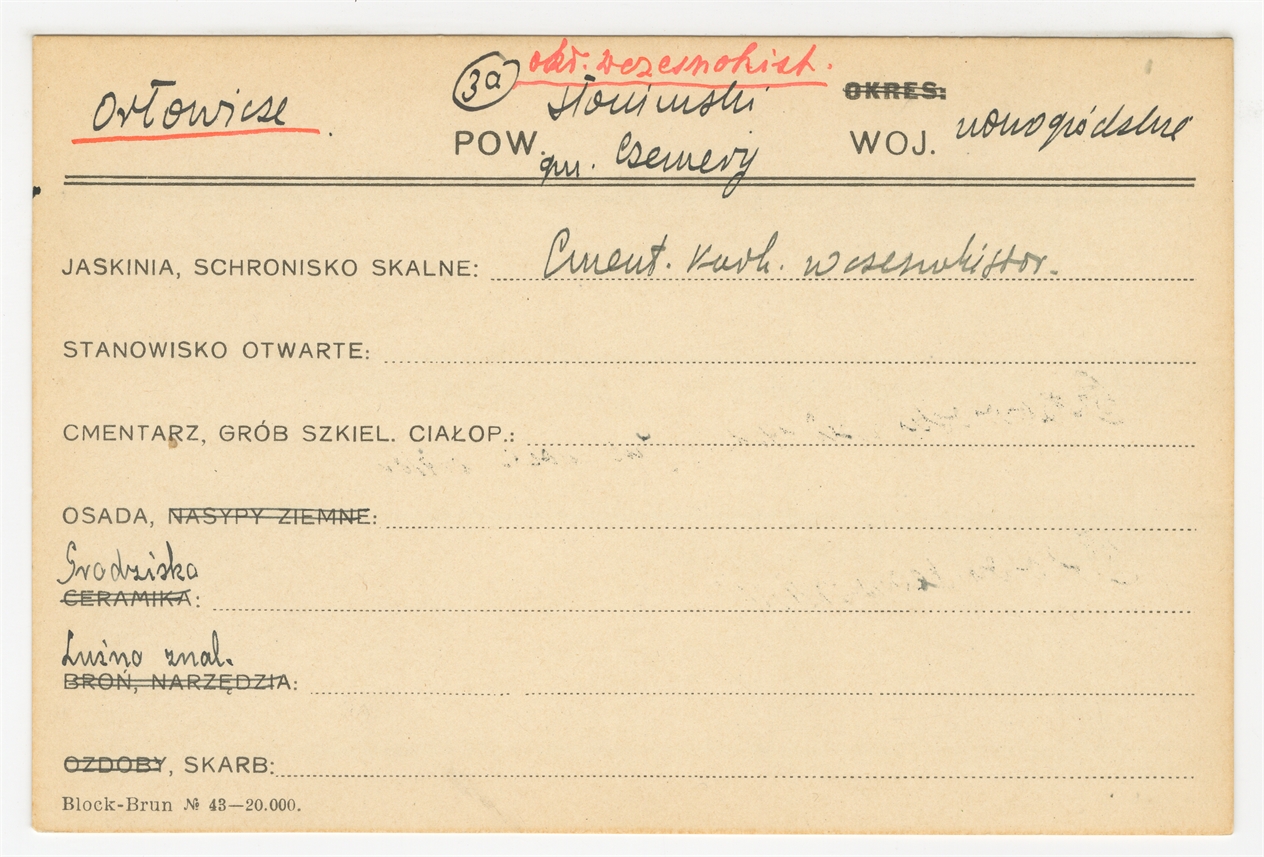 3a okr. wczesnohist.
Orłowicze
POW. słonimski
gm. Czemery
OKRES:
WOJ. nowogródzkie
JASKINIA, SCHRONISKO SKALNE: Cment. kurh. wczesnohistor.
STANOWISKO OTWARTE:
CMENTARZ, GRÓB SZKIEL. CIAŁOP.:
OSADA, NASYPY ZIEMNE:
Grodziska
CERAMIKA:
Luźno znal.
BROŃ, NARZĘDZIA:
OZDOBY, SKARB:
Block-Brun № 43—20.000.